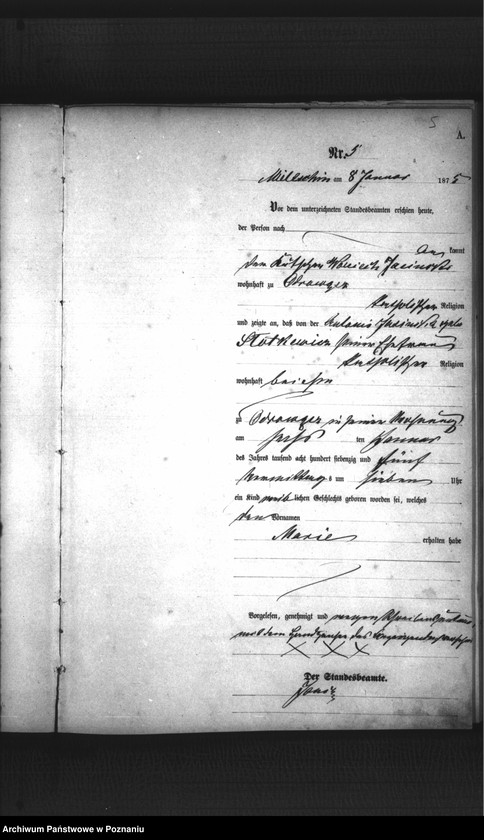 5
A.
Nr. 5
Millschin am 8 Januar 1875
Vor dem unterzeichneten Standesbeamten erschien heute,
der Person nach
kannt
wohnhaft zu
katholischer Religion
und zeigte an, daß von der
seiner Ehefrau
katholischer Religion
wohnhaft bei ihm
zu in seiner Wohnung
am sechs ten Januar
des Jahres tausend acht hundert siebenzig und fünf
Vormittags um sieben Uhr
ein Kind weiblichen Geschlechts geboren worden sei, welches
den Vornamen
Marie
erhalten habe
Vorgelesen, genehmigt und wegen
mit dem Handzeichen des versehen
X X X
Der Standesbeamte.
Archiwum Państwowe w Poznaniu